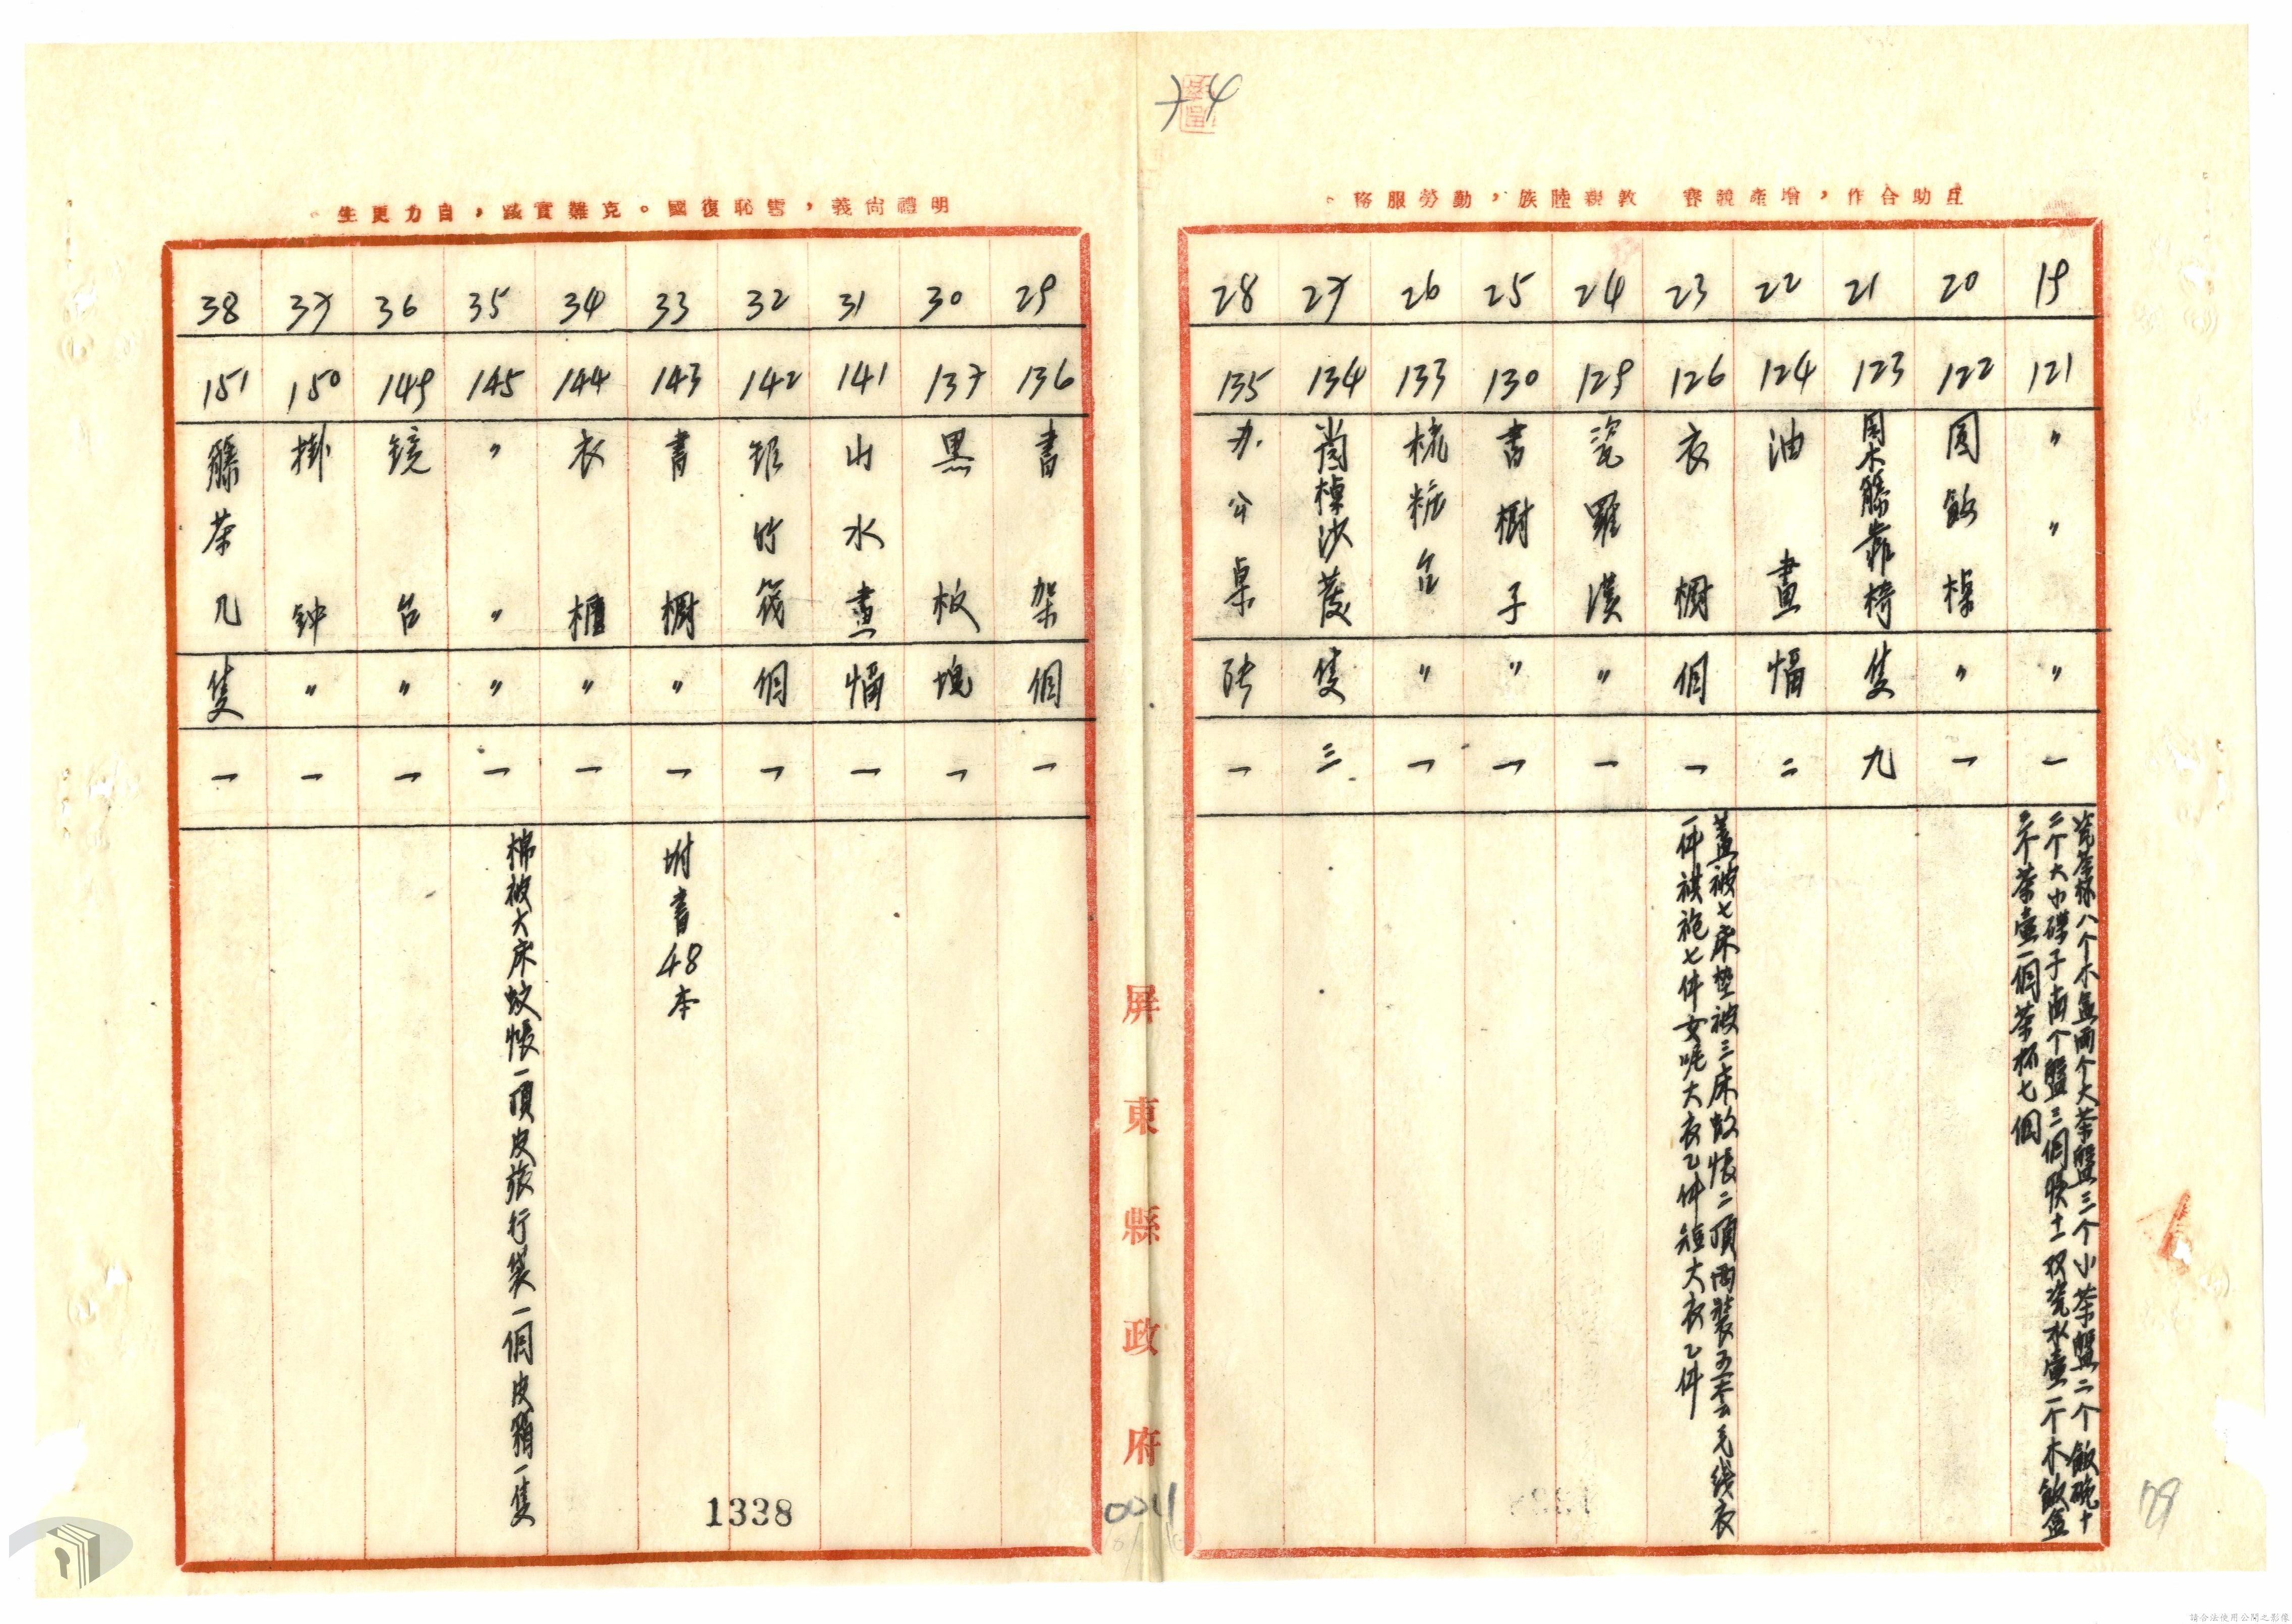 74
互助合作，增產競賽 敦親睦族，勤勞服務。
19 121 〃 〃 〃 一 瓷茶杯八个木盆兩个大茶盤三个小茶盤二个飯碗十
二个大小碟子南个盤三個筷十二双瓷水壺一个木飯盒
二个茶壺一個茶杯七個
20 122 圓飯棹 〃 一
21 123 圓木籐靠椅 隻 九
22 124 油畫 幅 二
23 126 衣櫥 個 一 蓋被七床墊被三床蚊帳二頂西裝五套毛线衣
一件祺袍七件女呢大衣乙件短大衣乙件
24 129 瓷羅漢 〃 一
25 130 書櫥子 〃 一
26 133 梳粧台 〃 一
27 134 沙發 隻 三
28 135 办公桌 張 一
屏東縣政府
0011
明禮尚義，雪恥復國。克難實踐，自力更生。
29 136 書架 個 一
30 137 黑板 塊 一
31 141 山水畫 幅 一
32 142 竹筏 個 一
33 143 書櫥 〃 一 坿書48本
34 144 衣櫃 〃 一
35 145 〃 〃 〃 一 棉被大床蚊帳一頂皮旅行袋一個皮箱一隻
36 149 鏡台 〃 一
37 150 掛鐘 〃 一
38 151 籐茶几 隻 一
1338
79
請合法使用公開之影像